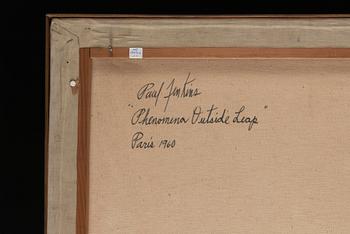 Paul Jenkins
"Phenomina Outside Leap"
Paris 1960